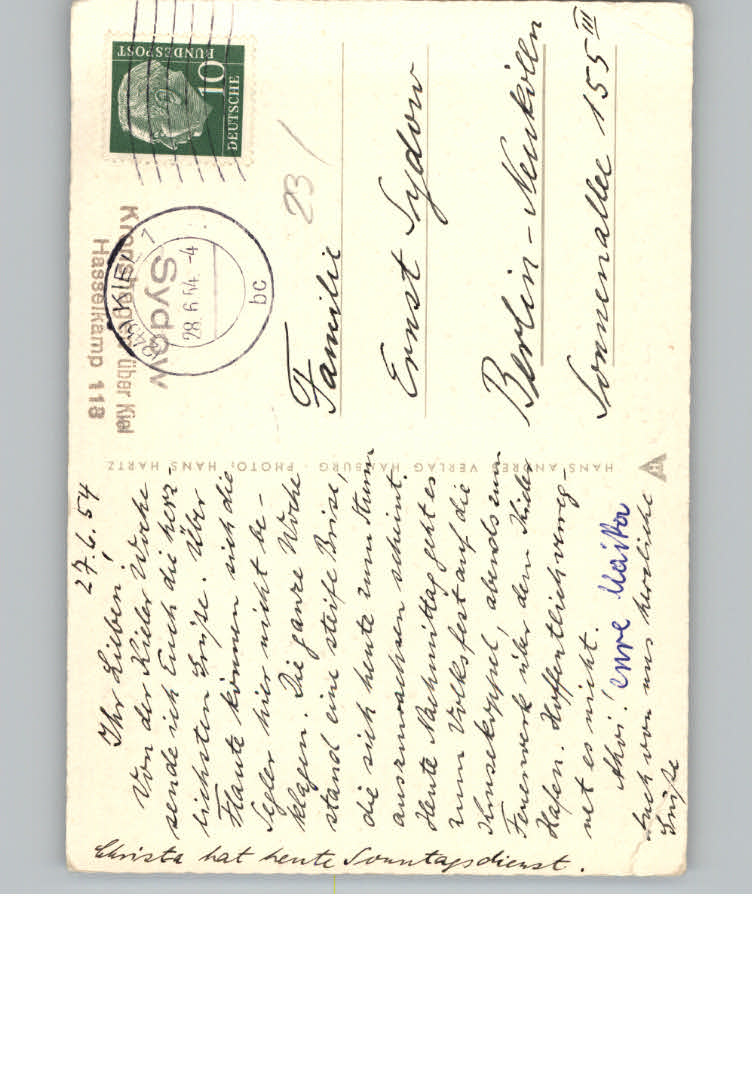 27.6.54
Ihr Lieben!
Von der Kieler Woche
sende ich Euch die herz-
lichsten Grüße. Über
Flaute können sich die
Segler hier nicht be-
klagen. Die ganze Woche
stand eine steife Brise,
die sich heute zum Sturm
auszuwachsen scheint.
Heute Nachmittag geht es
zum Volksfest auf die
Krusekoppel, abends zum
Feuerwerk über dem Kieler
Hafen. Hoffentlich reg-
net es nicht.
Ahoi! eure
Auch von uns herzliche
Grüße
Christa hat heute Sonntagsdienst.
HANS ANDRES VERLAG HAMBURG · PHOTO: HANS HARTZ
H
DEUTSCHE
10
BUNDESPOST
Sydow
Kronshagen über Kiel
Hasselkamp 118
(24b) KIEL 1
28.6.54.-4
bc
23/
Familie
Ernst Sydow
Berlin-Neukölln
Sonnenallee 155 III